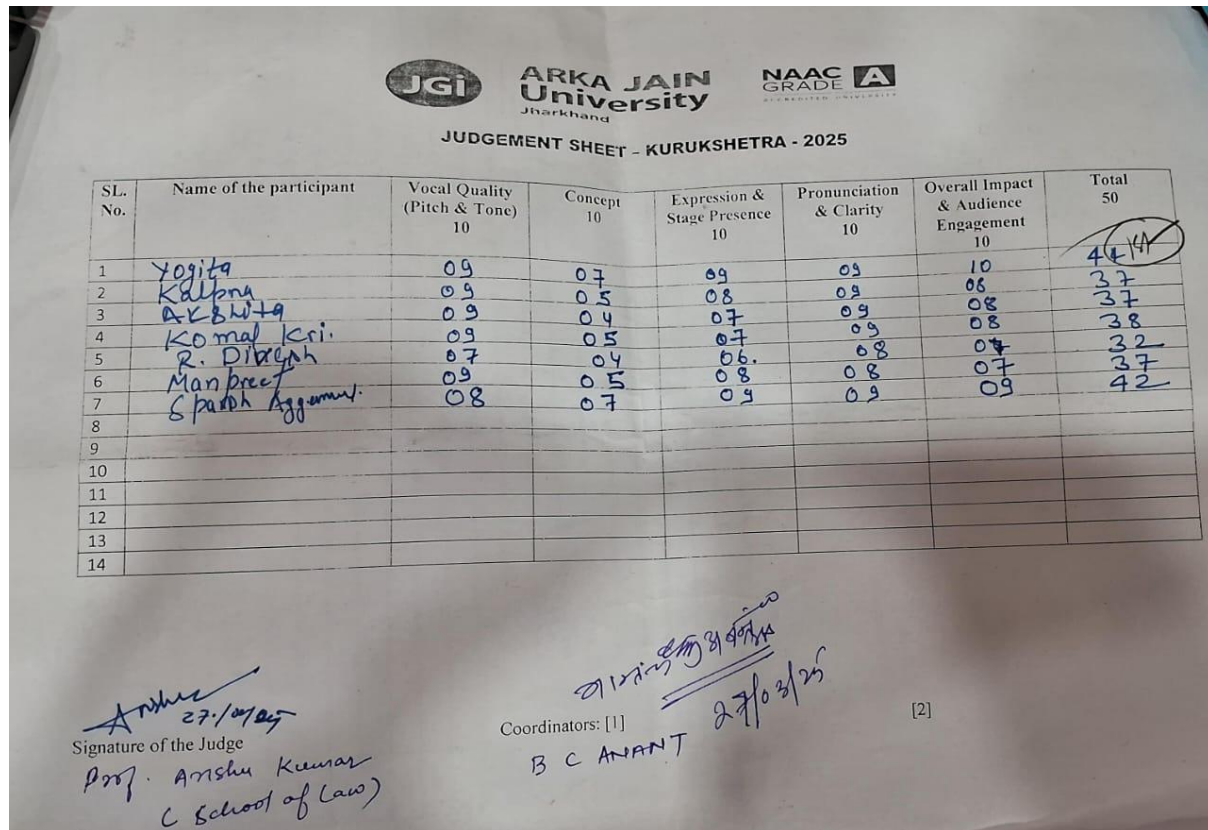 JGi
ARKA JAIN
University
Jharkhand
NAAC
GRADE A
ACCREDITED UNIVERSITY
JUDGEMENT SHEET - KURUKSHETRA - 2025
SL. No. Name of the participant Vocal Quality (Pitch & Tone) 10 Concept 10 Expression & Stage Presence 10 Pronunciation & Clarity 10 Overall Impact & Audience Engagement 10 Total 50
1 Yogita 09 07 09 09 10 44
2 Kalpna 09 05 08 09 08 37
3 Akshita 09 04 07 09 08 37
4 Komal Kri. 09 05 07 09 08 38
5 R. Dibesh 07 04 06. 08 07 32
6 Manpreet 09 05 08 08 07 37
7 Sparsh Aggarwal. 08 07 09 09 09 42
8
9
10
11
12
13
14
Anshu
27/03/25
Signature of the Judge
Prof. Anshu Kumar
(School of Law)
27/03/25
Coordinators: [1]
B C ANANT
[2]